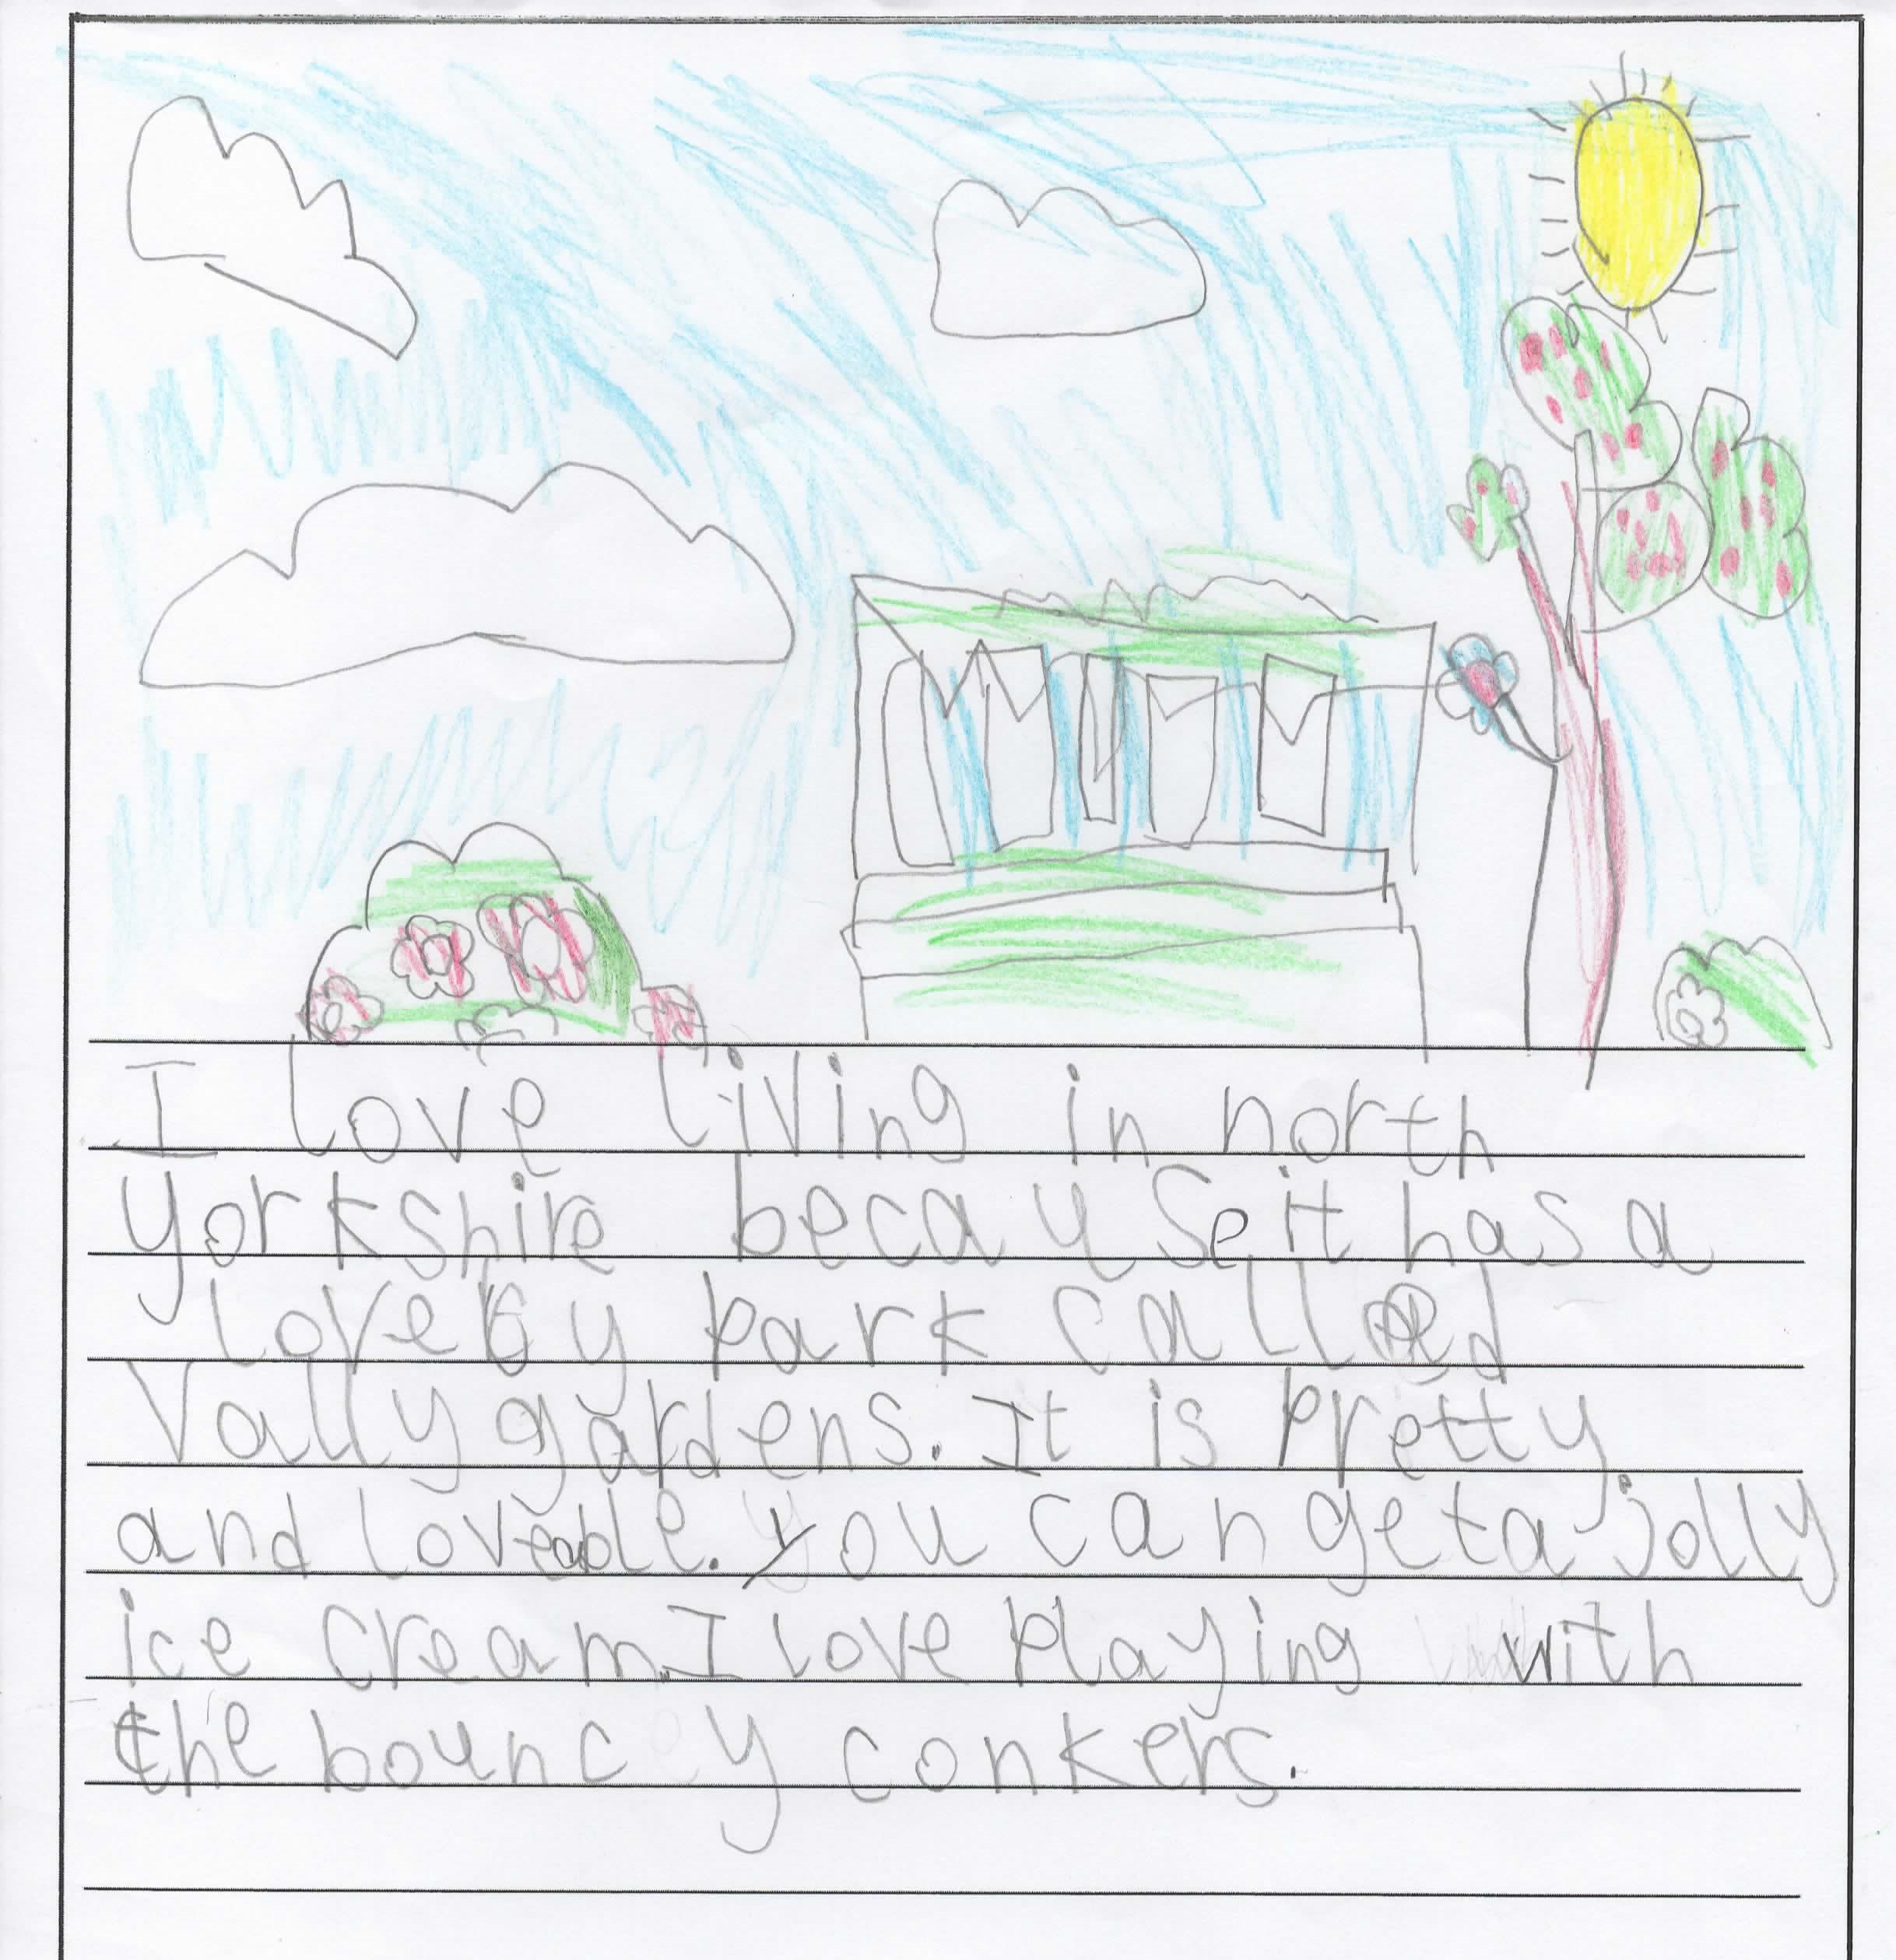 I love living in north
yorkshire becauseit has a
lovely park called
Vally gardens. It is pretty
and loveable. you can get a jolly
ice cream. I love playing with
the bouncy conkers.